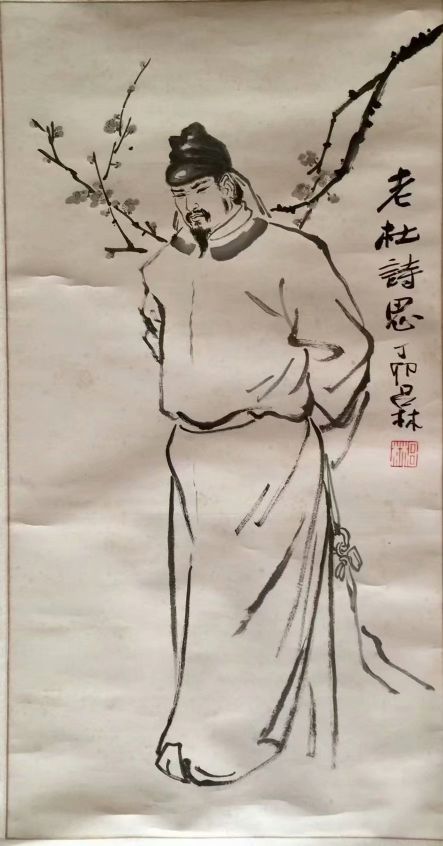 老杜詩思丁卯吕林